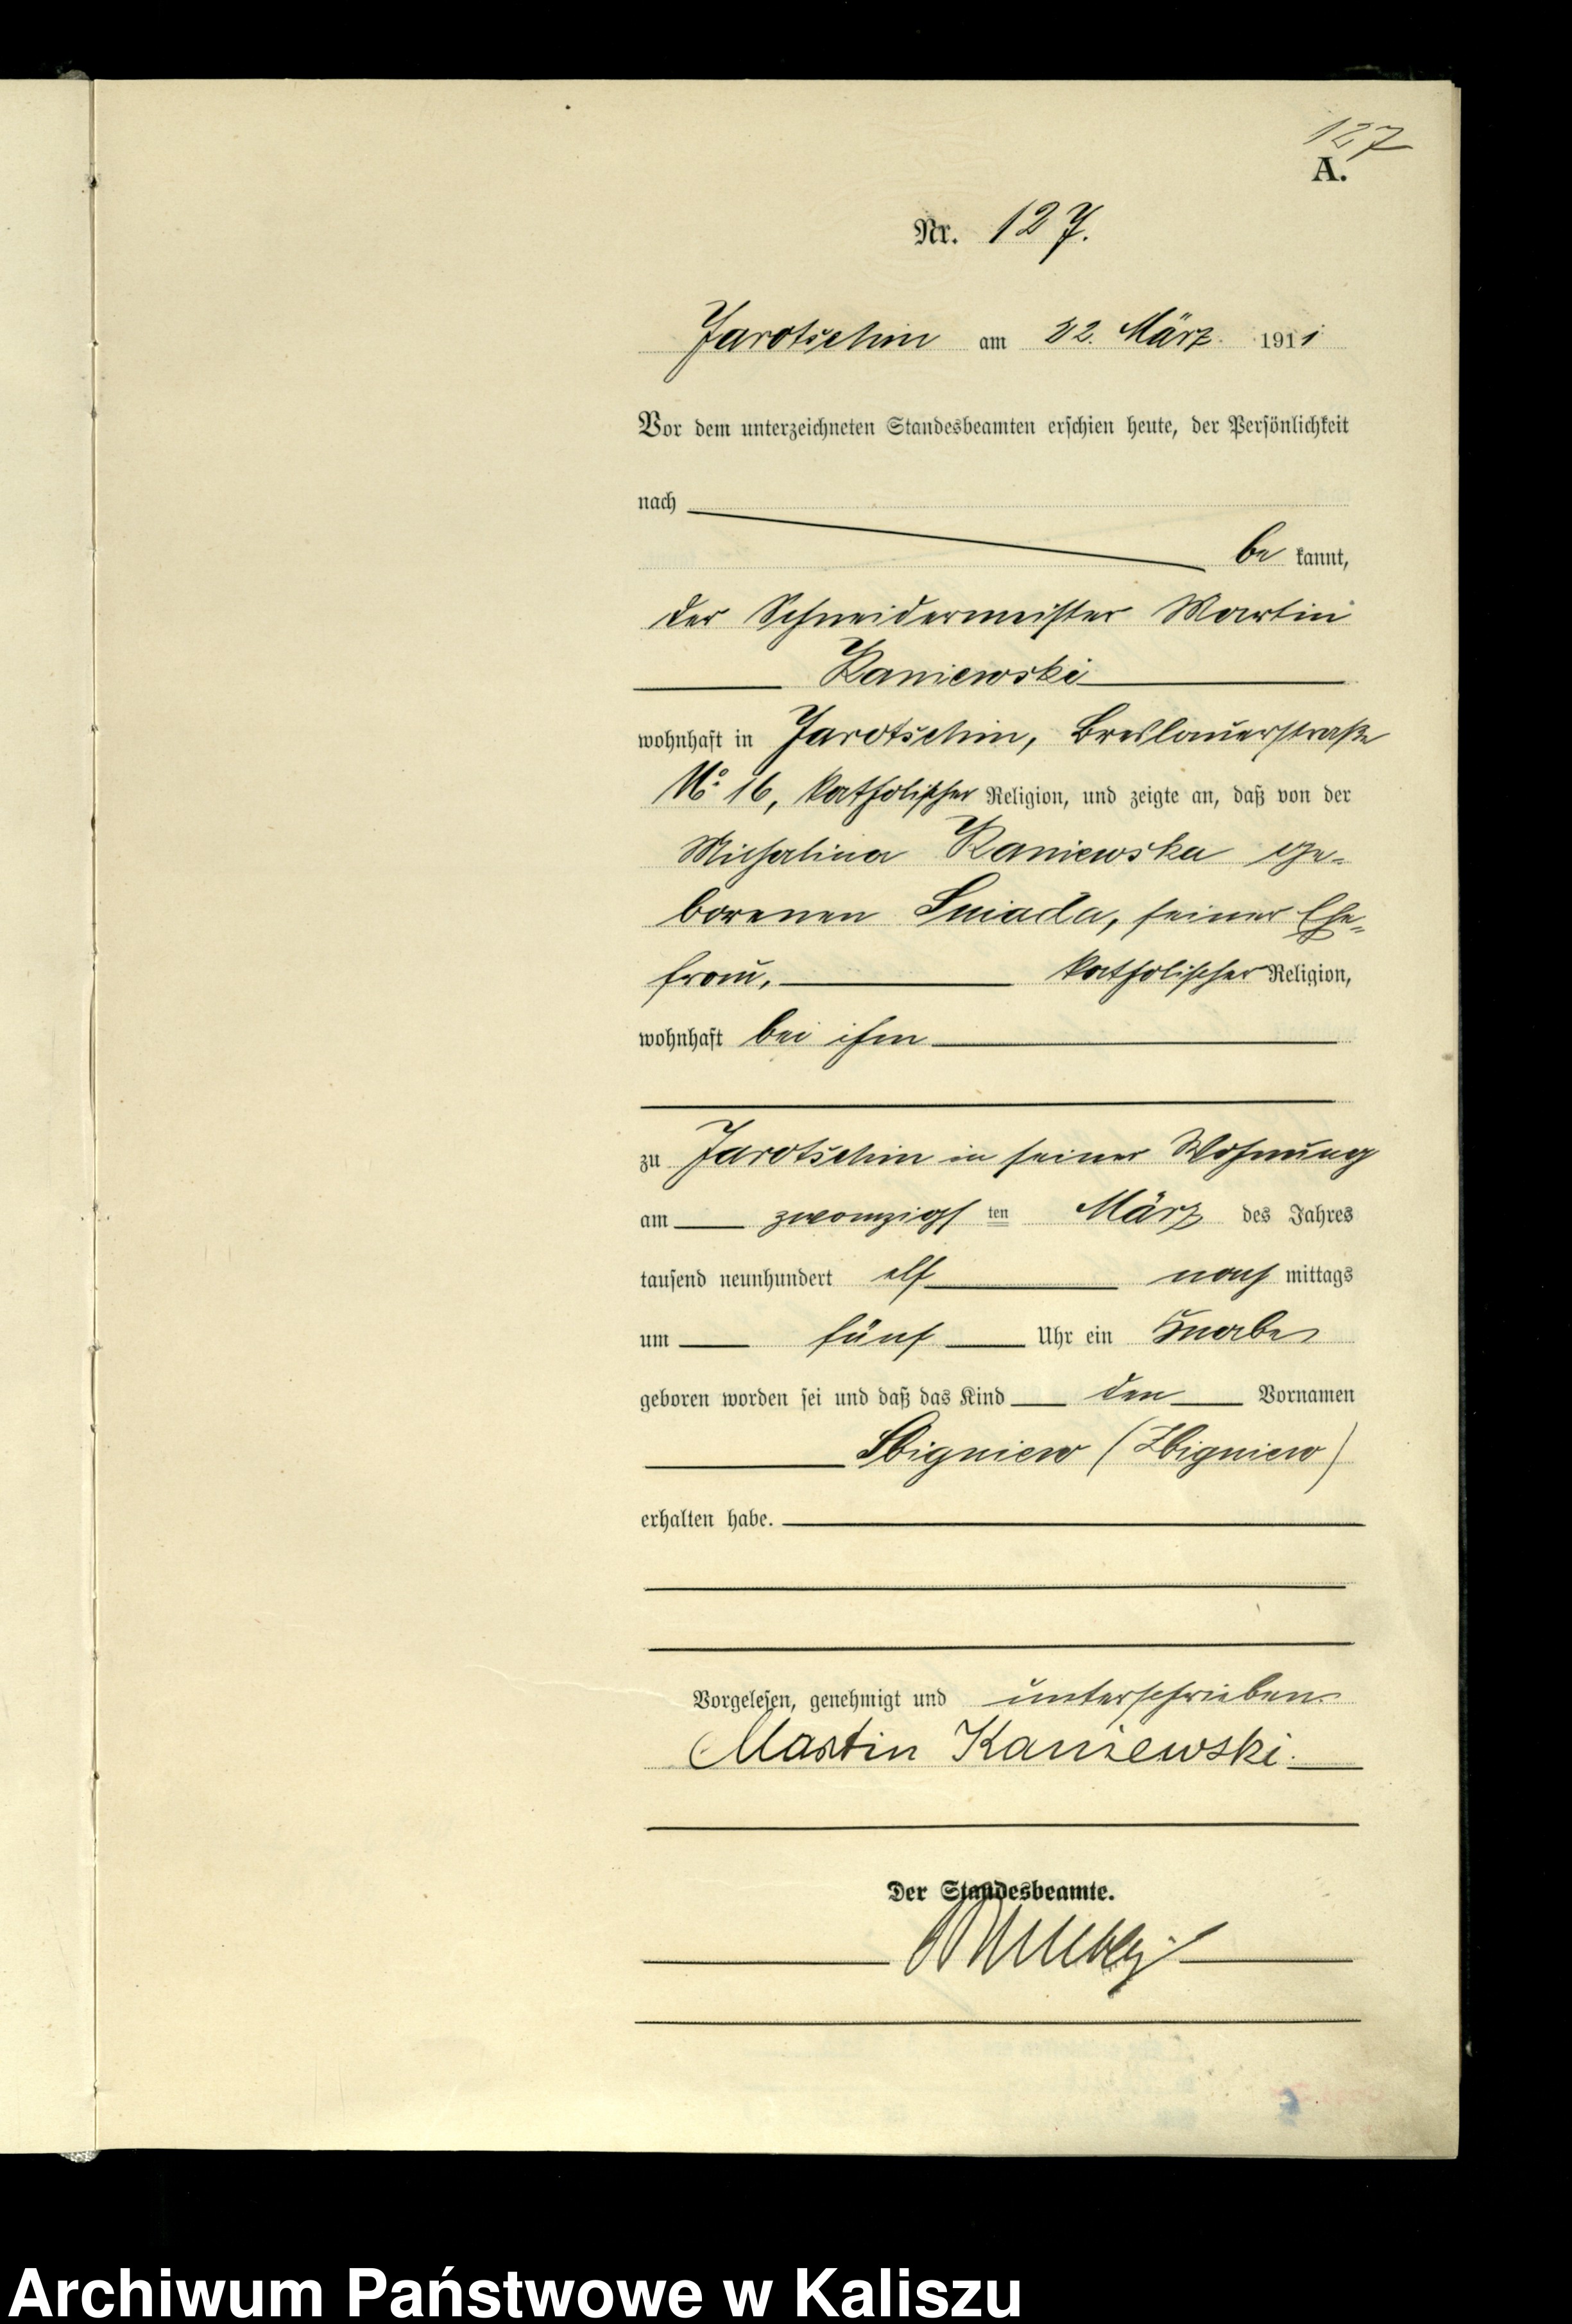 127
A.
Nr. 127.
Jarotschin am 22. März 1911
Vor dem unterzeichneten Standesbeamten erschien heute, der Persönlichkeit
nach
be kannt,
der Schneidermeister Martin
Kaniewski
wohnhaft in Jarotschin, Breslauerstraße
No 16, katholischer Religion, und zeigte an, daß von der
Michalina Kaniewska ge-
borenen Sniada, seiner Ehe-
frau, katholischer Religion,
wohnhaft bei ihm
zu Jarotschin in seiner Wohnung
am zwanzigs ten März des Jahres
tausend neunhundert elf nach mittags
um fünf Uhr ein Knabe
geboren worden sei und daß das Kind den Vornamen
Sbigniew (Zbigniew)
erhalten habe.
Vorgelesen, genehmigt und unterschrieben
Martin Kaniewski.
Der Standesbeamte.
Archiwum Państwowe w Kaliszu